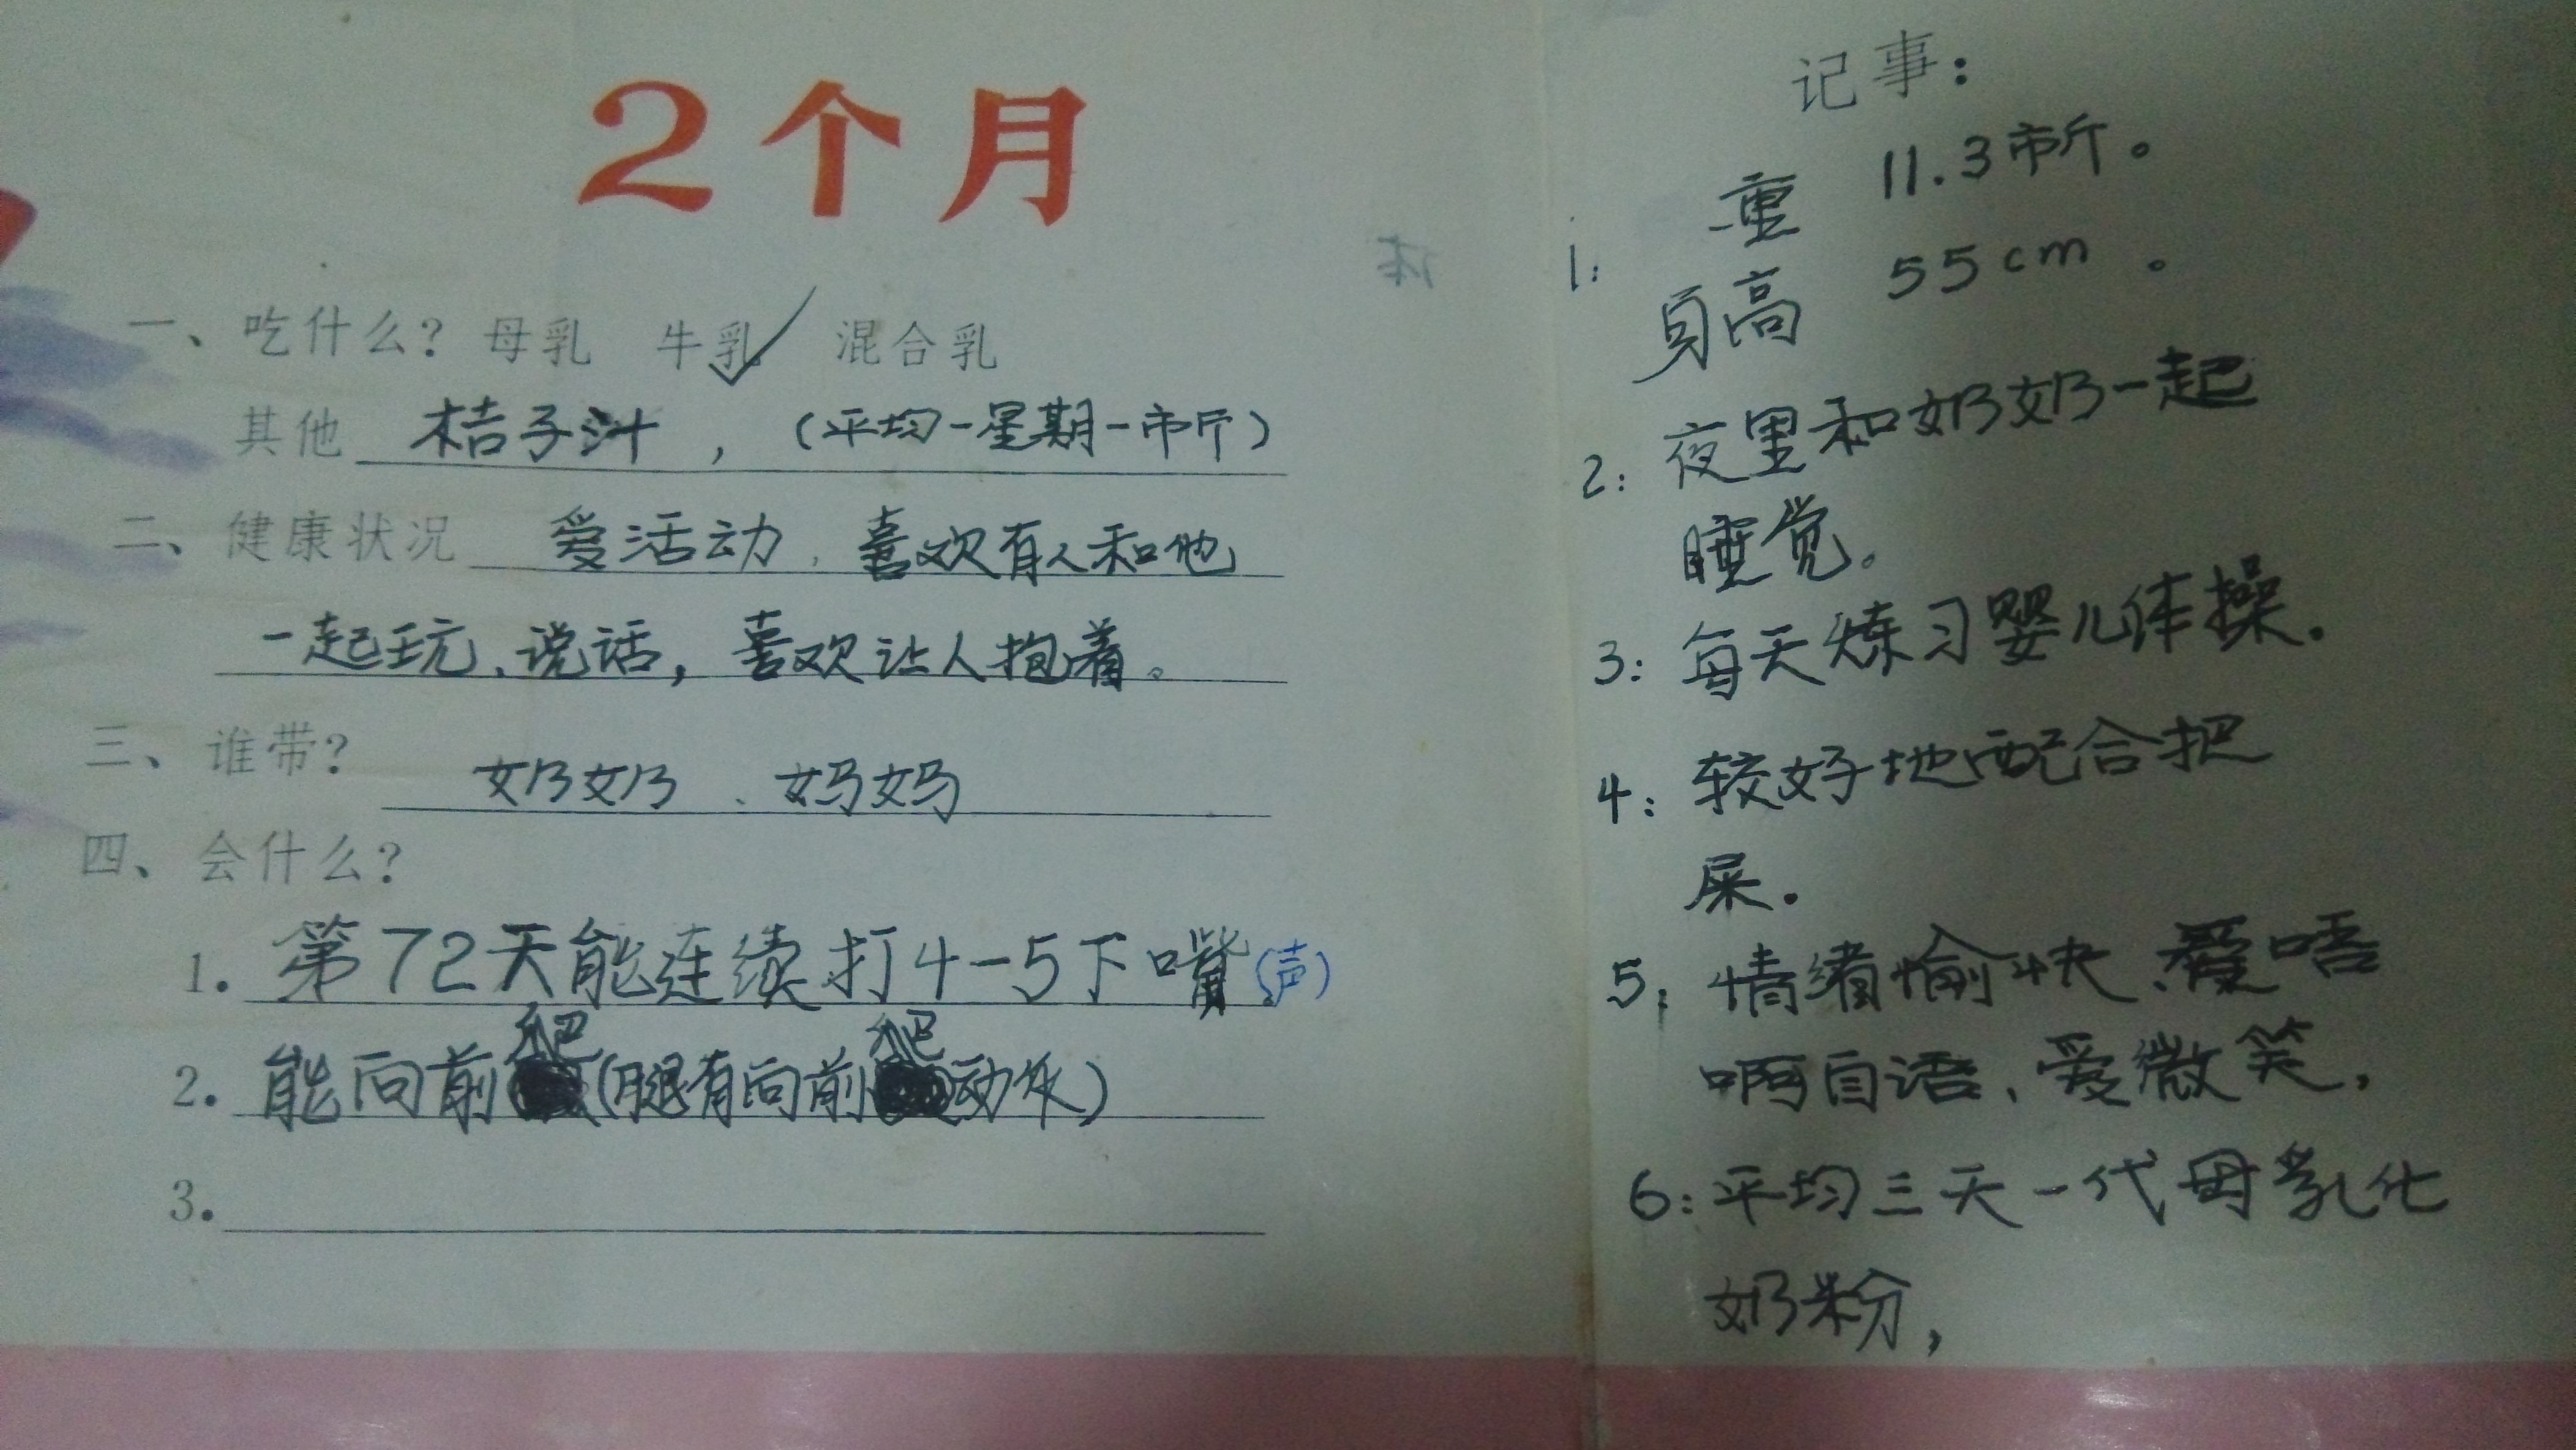 2个月
一、吃什么？母乳 牛乳✓ 混合乳
其他 桔子汁，（平均一星期一市斤）
二、健康状况 爱活动、喜欢有人和他
一起玩、说话，喜欢让人抱着。
三、谁带？ 奶奶、妈妈
四、会什么？
1. 第72天能连续打4-5下嘴(声)
2. 能向前爬(腿有向前爬动作)
3.
记事：
1: 重 11.3市斤。
身高 55cm。
2: 夜里和奶奶一起
睡觉。
3: 每天炼习婴儿体操.
4: 较好地配合把
屎.
5: 情绪愉快、爱唔
啊自语、爱微笑,
6: 平均三天一代母乳化
奶粉,